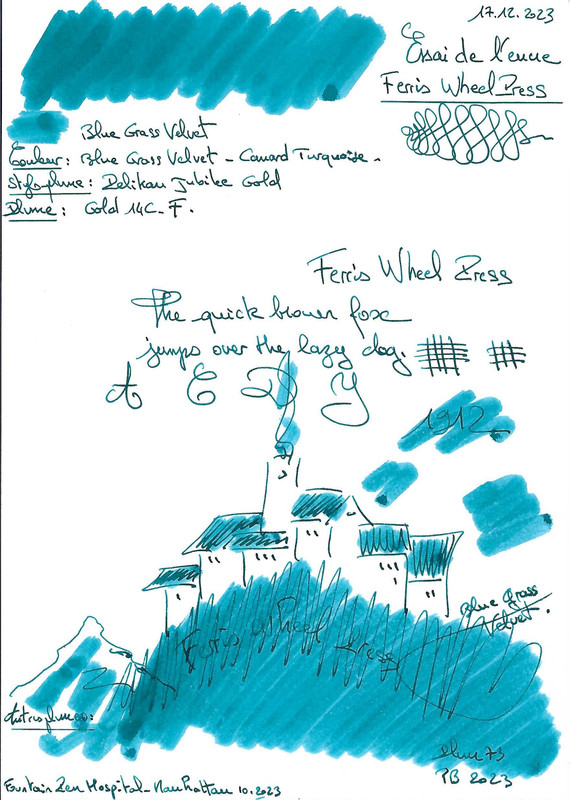 17.12.2023
Essai de l'encre
Ferris Wheel Press
Blue Grass Velvet
Couleur : Blue Grass Velvet - Canard Turquoise.
Stylo-plume : Pelikan Jubilee Gold
Plume : Gold 14C - F.
Ferris Wheel Press
The quick brown fox
jumps over the lazy dog.
A E D Y
1912
Blue Grass
Velvet.
Ferris Wheel Press
Autres plumes :
73
PB 2023
Fountain Pen Hospital - Manhattan 10.2023